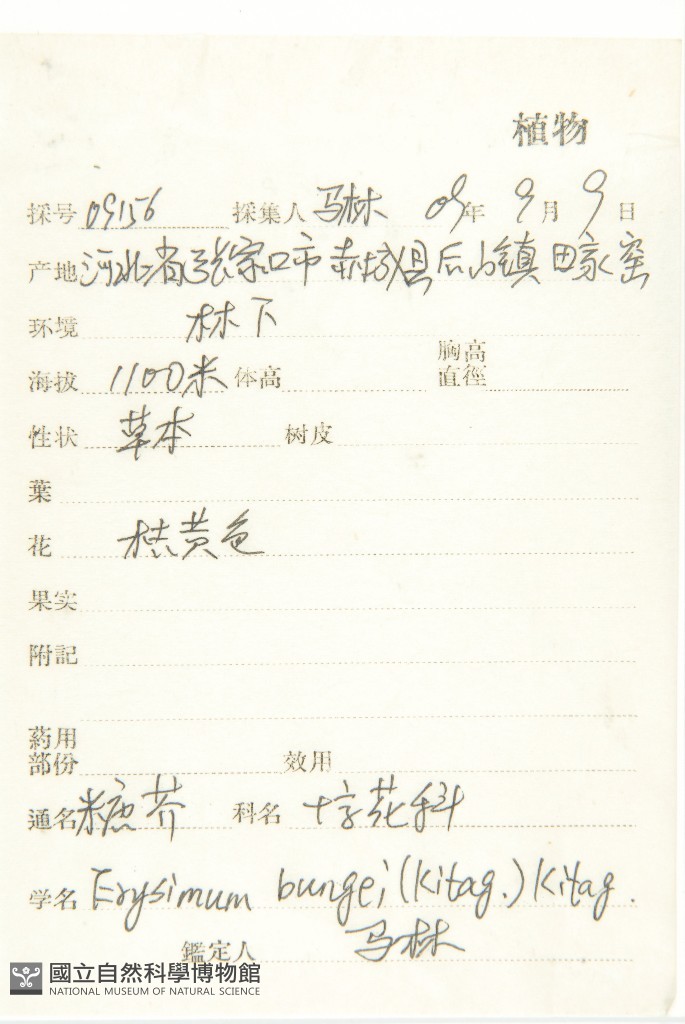 植物
採号 09156 採集人 马林 09年 9月 9日
产地 河北省张家口市赤城县后 镇田家窑
环境 林下
海拔 1100米 体高 胸高直徑
性状 草本 树皮
葉
花 桔黄色
果实
附記
葯用部份 效用
通名 糖芥 科名 十字花科
学名 Erysimum bungei (Kitag.) Kitag.
鑑定人 马林
國立自然科學博物館
NATIONAL MUSEUM OF NATURAL SCIENCE